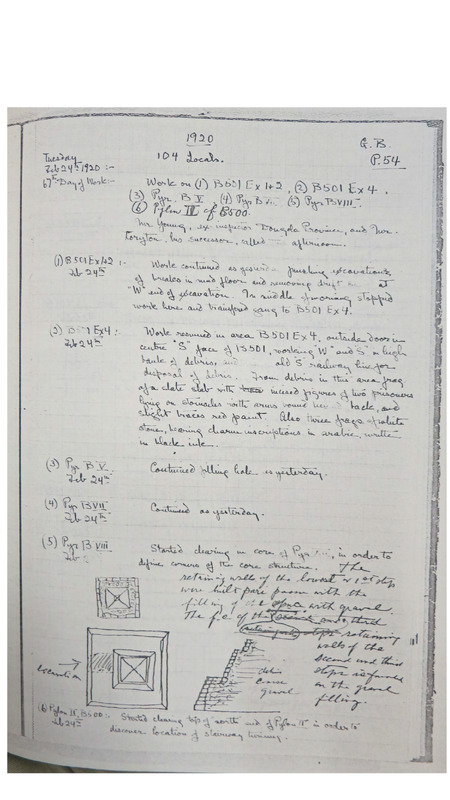 1920
G.B.
P.54
104 Locals.
Tuesday
Feb 24th 1920 :-
67th Day of Work:-
Work on (1) B501 Ex 1+2, (2) B501 Ex 4,
(3) Pyr. B V, (4) Pyr B V (5) Pyr B VIII.
(6) Pylon II of B500.
Mr Young, ex-inspector Dongola Province, and Mr.
his successor, called in afternoon.
(1) B501 Ex 1+2 :-
Feb 24th
Work continued as yesterday finishing excavations
of breaks in mud floor and removing drift at
"W" end of excavation. In middle of morning stopped
work here and transferred gang to B501 Ex 4.
(2) B501 Ex 4 :-
Feb 24th
Work resumed in area B501 Ex 4, outside door in
centre "S" face of B501, working "W" and "S" in high
bank of debris, old "S" railway line for
disposal of debris. From debris in this area frag
of a slate slab with incised figures of two prisoners
lying on stomachs with arms bound back, and
slight traces red paint. Also three frags of white
stone, bearing charm inscriptions in arabic, written
in black ink.
(3) Pyr B V
Feb 24th
Continued filling hole as yesterday.
(4) Pyr B VII
Feb 24th
Continued as yesterday.
(5) Pyr B VIII
Feb
Started clearing on core of Pyr, in order to
define corners of the core structure. The
retaining walls of the lowest or 1st step
were built pari passu with the
filling of the space with gravel.
The face of the second and third
steps retaining
walls of the
second and third
steps is founded
in the gravel
filling.
debris
gravel
(6) Pylon II, B500:-
Feb 24th
Started clearing top of north end of Pylon II in order to
discover location of stairway